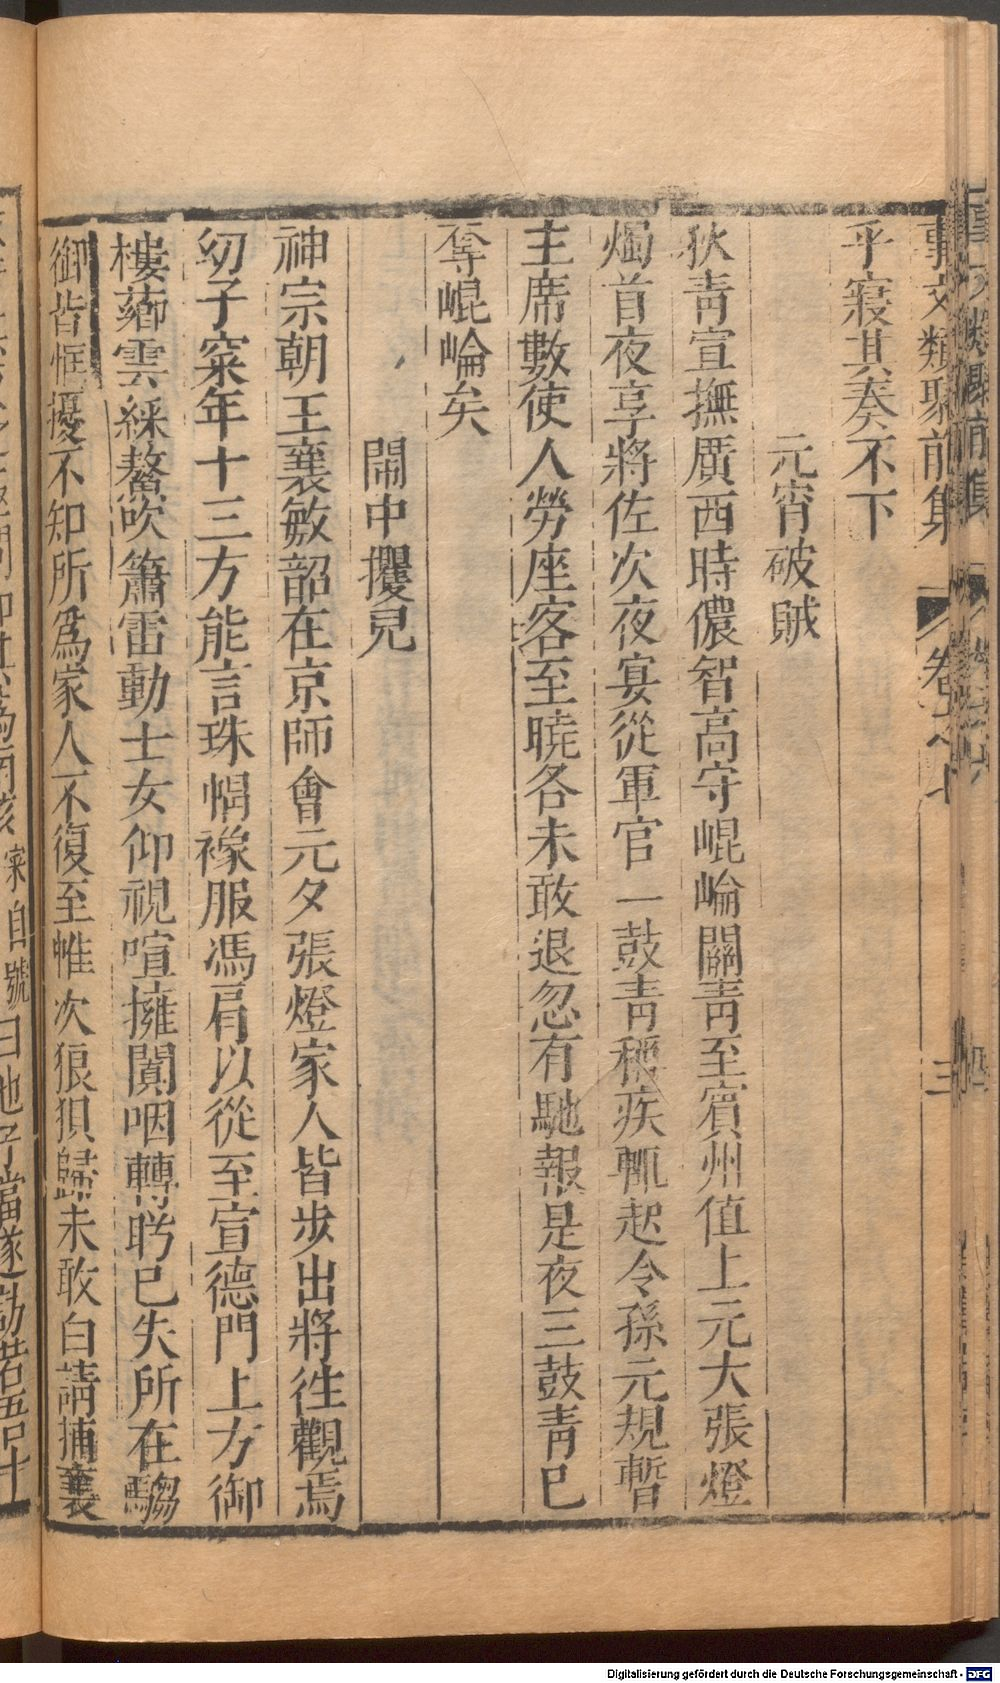 事文類聚前集 卷之七 三
乎寢其奏不下
元宵破賊
狄靑宣撫廣西時儂智高守崐崘關靑至賓州值上元大張燈
燭首夜享將佐次夜宴從軍官一鼓靑稱疾輒起令孫元規暫
主席數使人勞座客至曉各未敢退忽有馳報是夜三鼓靑已
奪崐崘矣
鬧中攫兒
神宗朝王襄敏韶在京師會元夕張燈家人皆步出將徃觀焉
幼子寀年十三方能言珠帽褖服馮肩以從至宣德門上方御
樓薌雲綵鰲吹簫雷動士女仰視喧擁闐咽轉盻已失所在騶
御皆恇擾不知所爲家人不復至帷次狼狽歸未敢白請捕襄
寀自號曰他子當遂訪若吾
Digitalisierung gefördert durch die Deutsche Forschungsgemeinschaft - DFG